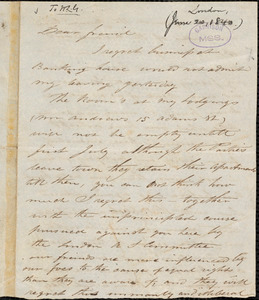 To W.L.G.
London,
(June 30, 1840)
Dear friend
I regret Business at
Banking house would not admit
my leaving yesterday
The Rooms at my lodgings
(Mrs Andrews 15 Adams St)
will not be empty until
first July although the Parties
leave town they retain their Apartments
till then, you can not think how
much I regret this — together
with the unprincipled course
pursued against you here by
the London A S Committee
our friends are more influenced by
our foes to the cause of equal rights
than they are aware of and they will
regret this